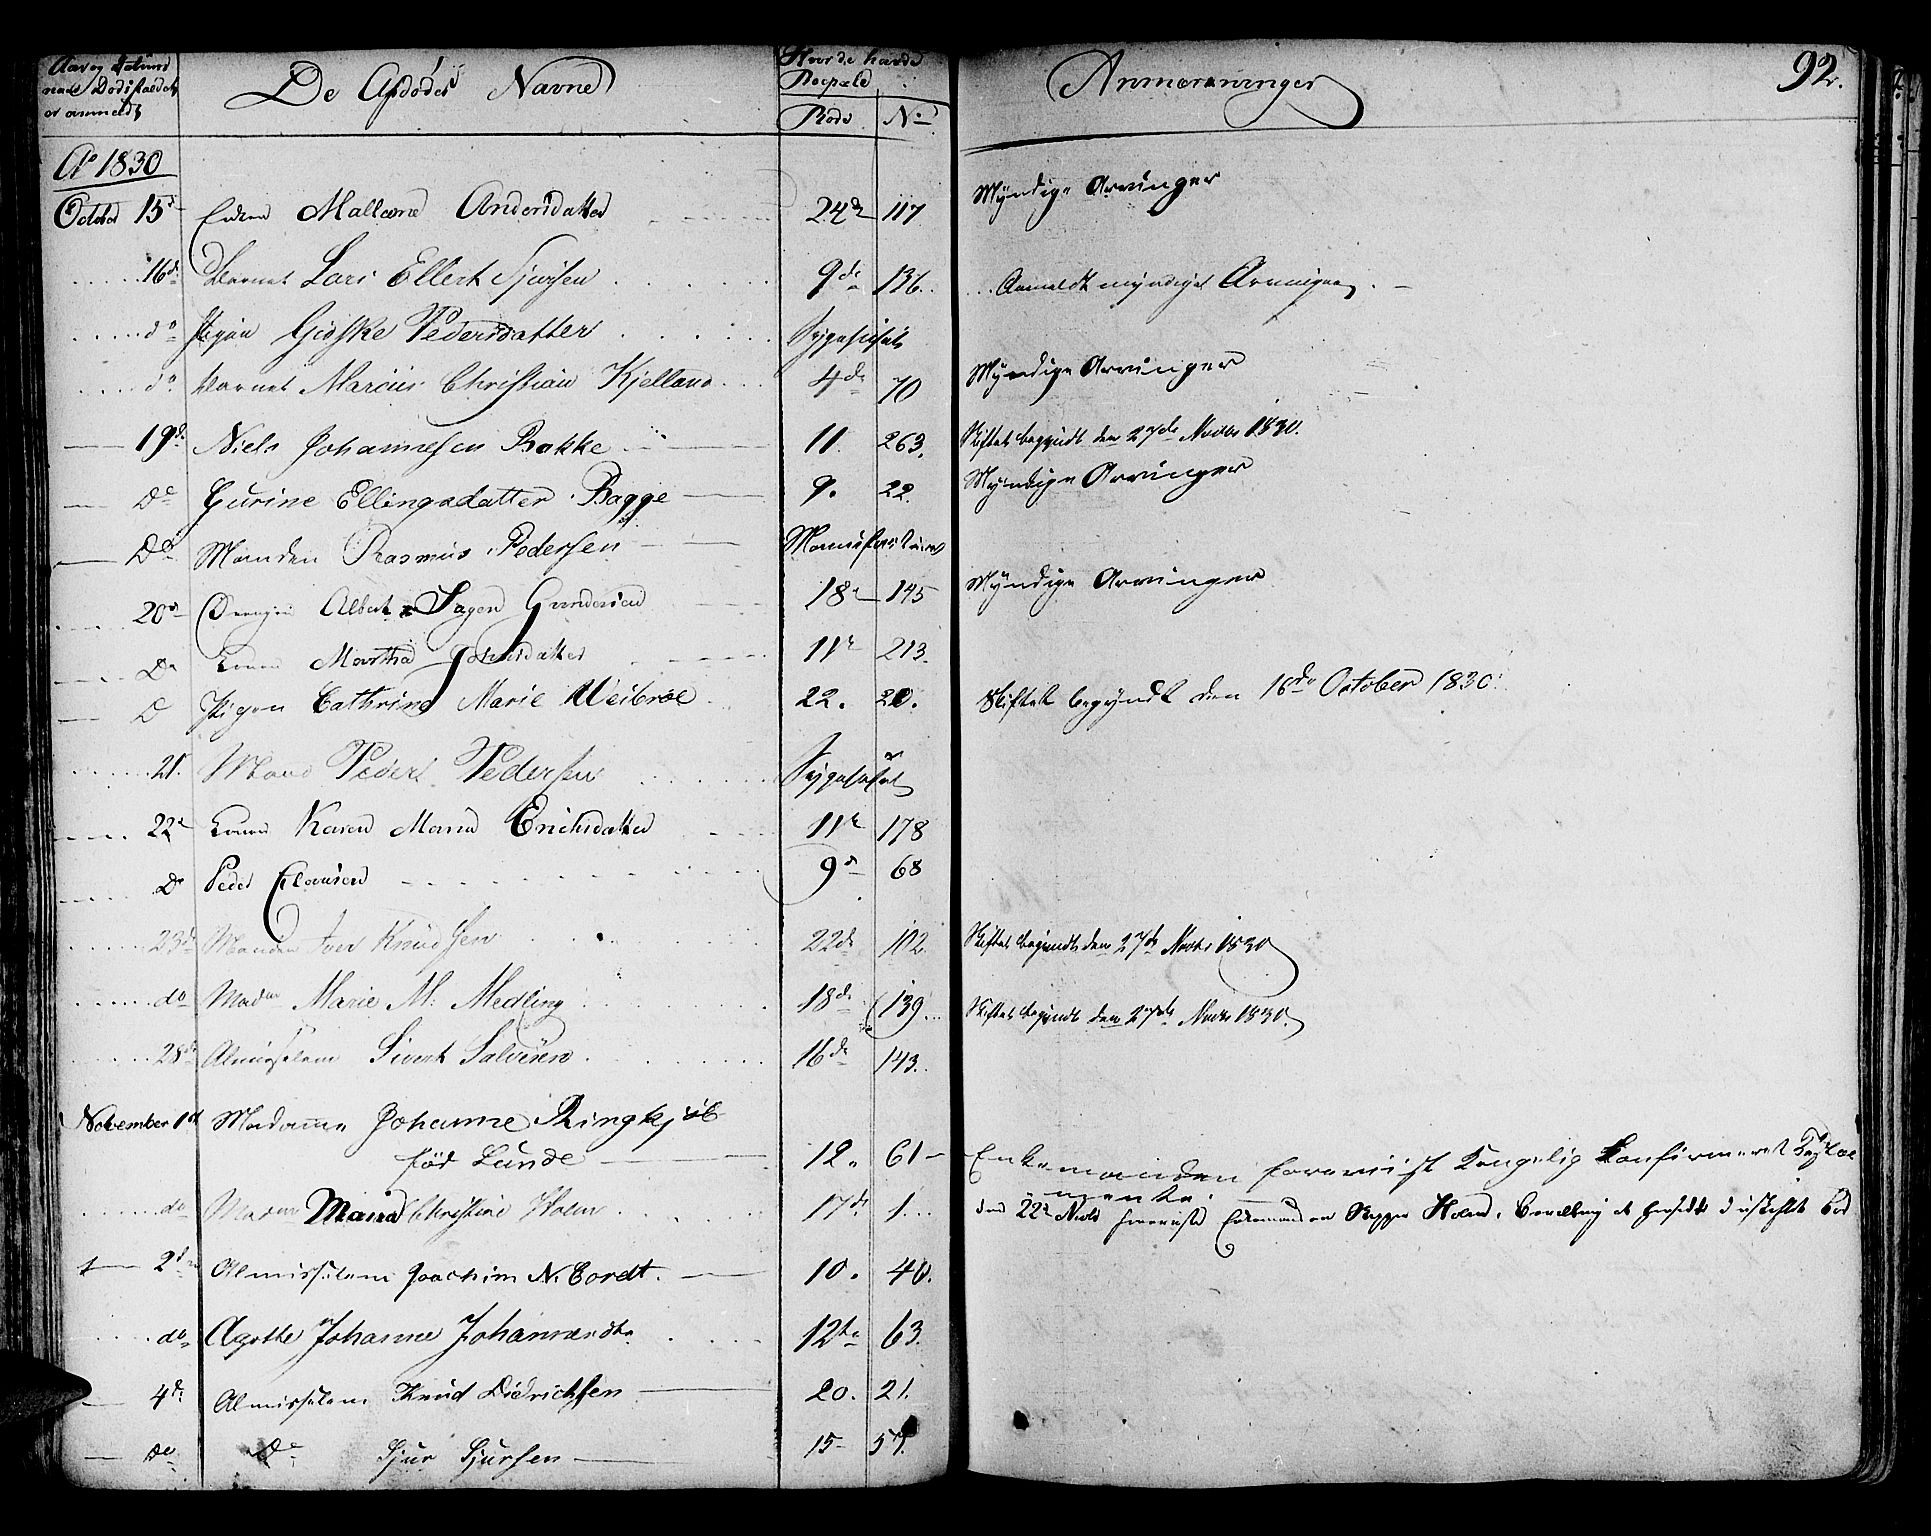 Aar og Datum
naar Dødsfaldet
er anmeldt
De Afdødes Navne
Hvor de havde
Boepæl
Rode No
Anmærkninger
92.
Ao 1830
October 15d Enken Mallene Andersdatter 24d 117 Myndige Arvinger
16d Barnet Lars Ellert Sjursen 9de 136. Anmeldt myndiges Arvinger
do Pigen Gidske Pedersdatter Sygehuset
do Barnet Marcus Christian Kjelland 4de 70 Myndige Arvinger
19d Niels Johannesen Bakke 11. 263. Skiftet begyndt den 27de Novbr 1830.
Do Gurine Ellingsdatter Bagge 9. 22. Myndige Arvinger
Do Manden Rasmus Pedersen Manufacturet
20d Drengen Albert Sagen Gundersen 18d 145 Myndige Arvinger
Do Konen Martha Johnsdatter 11te 213.
D Pigen Cathrine Marie Weibroe 22. 20. Skiftet begyndt den 16de October 1830.
21. Mand Peder Pedersen Sygehuset
22d Konen Karen Maria Erichsdatter 11te 178
Do Peder Clausen 9d 68
23d Manden Iver Knudsen 22de 102. Skiftet begyndt den 27de Novbr 1830
do Madme Marie M. Medling 18de 139. Skiftet begyndt den 27de Novbr 1830.
28de Almisselem Sivert Salvesen 16de 143.
November 1st Madamme Johanne Ringkjøb
fød Lunde 12. 61 Enkemanden foreviist Kongelig Confirmeret Testa
mente.
do Madme Maria Christine Holm 17de 1. den 22d Novbr foreviiste Enkemanden Skipper Holm, Bevilling at hensidde i uskiftet Boe
2d Almisselem Joachim N. Cordt. 10. 40.
do Agethe Johanne Johannesdtr 12te 63.
4de Almisselem Knud Didrichsen 20. 21.
Do Do Sjur Sjursen 15 57.